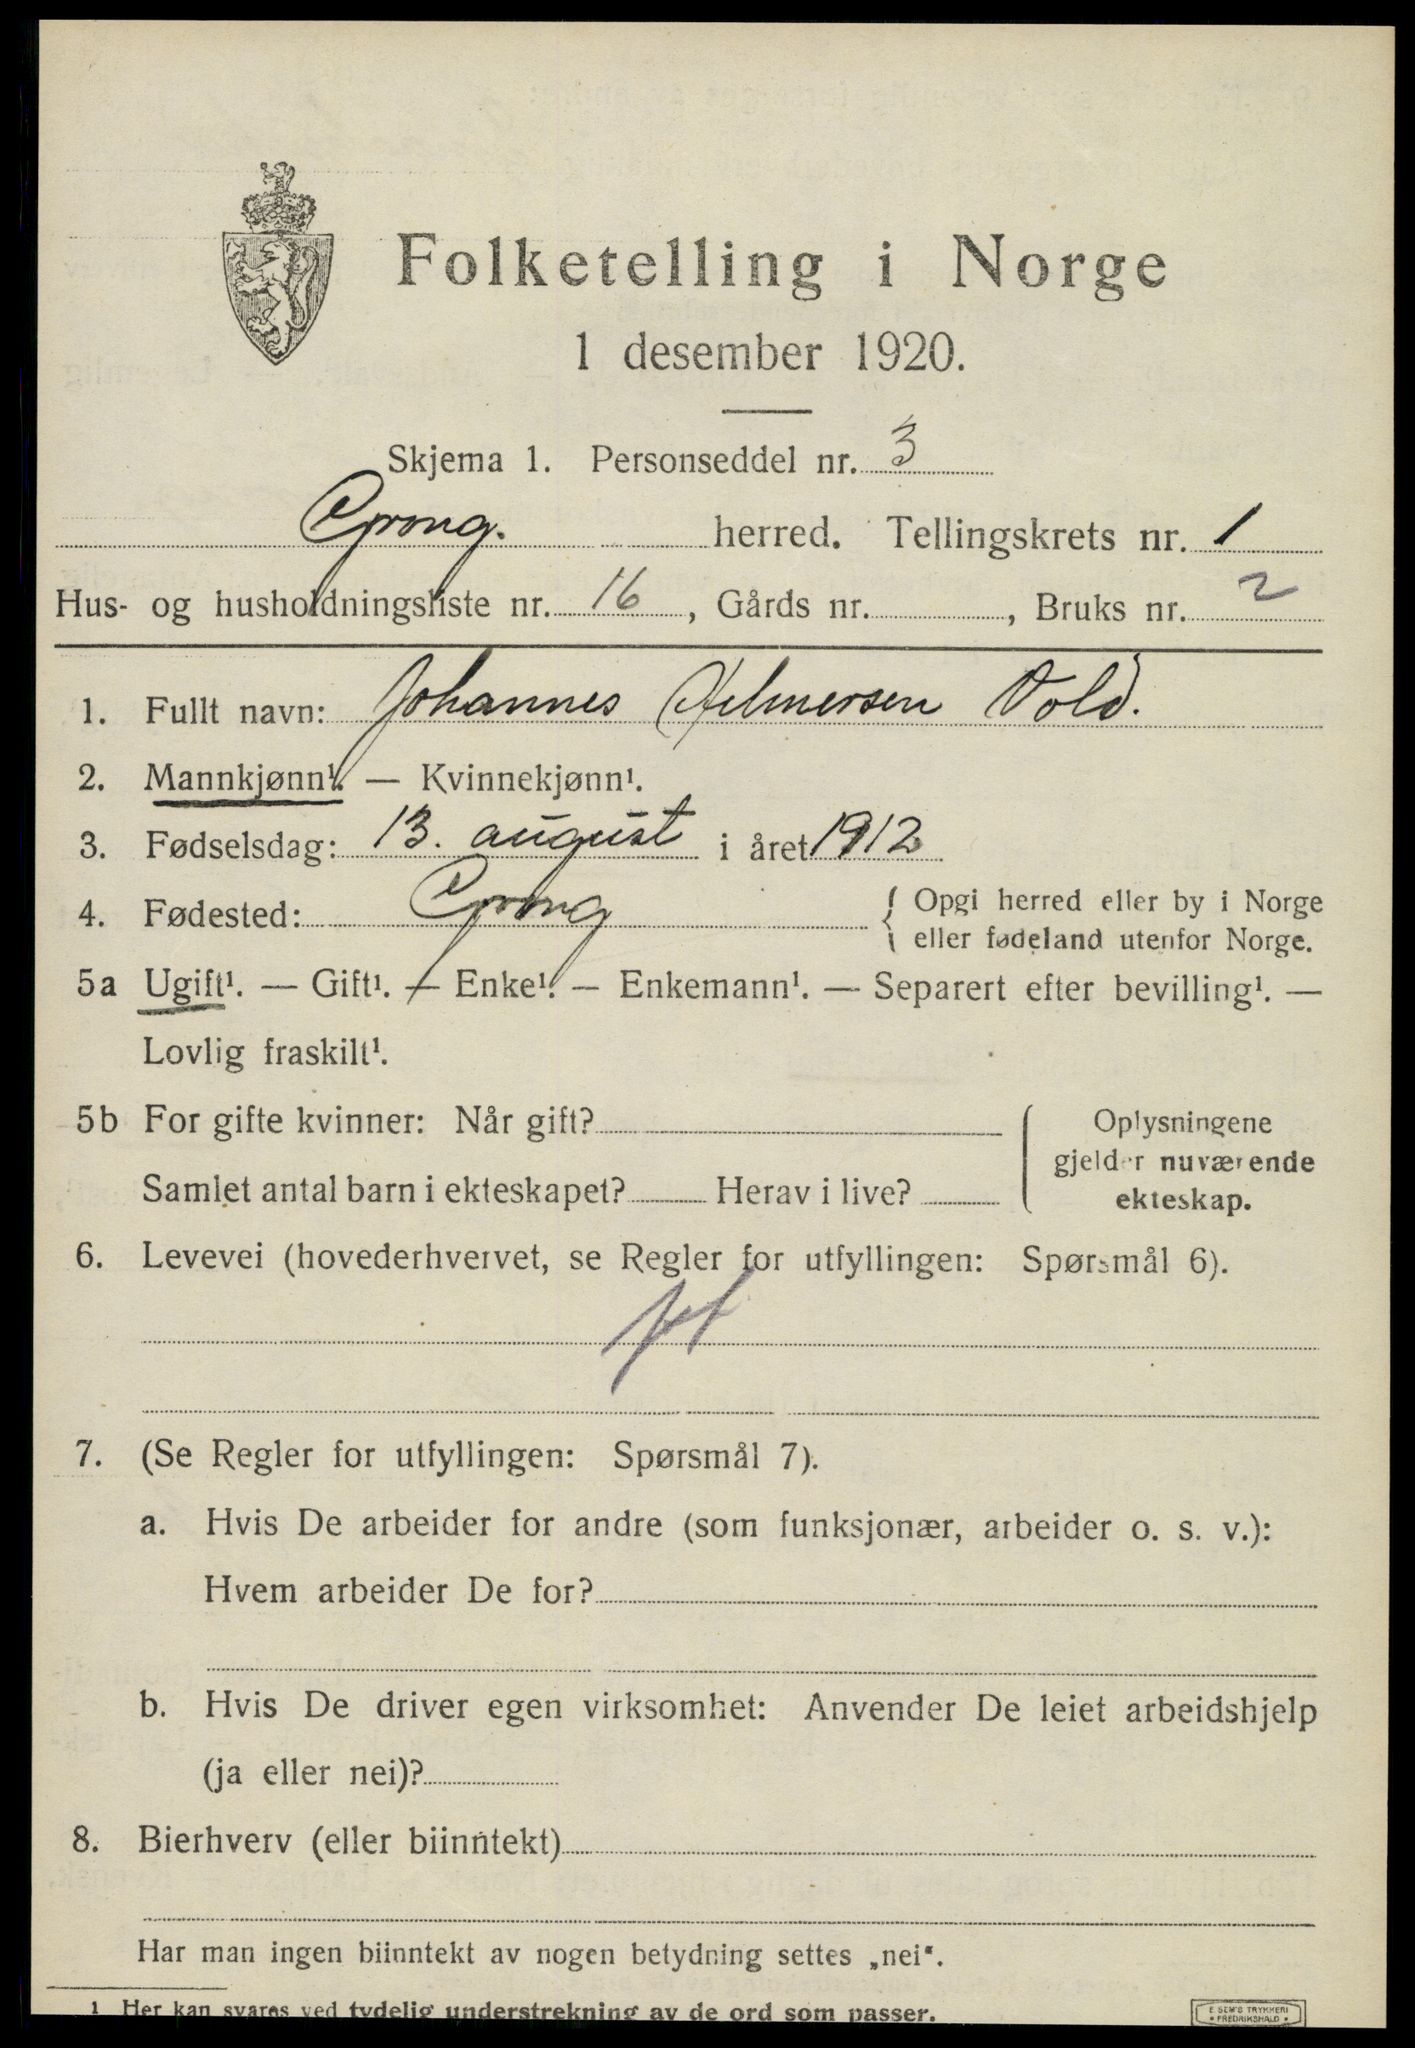 Folketelling i Norge
1 desember 1920.
Skjema 1. Personseddel nr. 3
Grong. herred. Tellingskrets nr. 1
Hus- og husholdningsliste nr. 16, Gårds nr. , Bruks nr. 2
1. Fullt navn: Johannes Helmersen Vold.
2. Mannkjønn¹. — Kvinnekjønn¹.
3. Fødselsdag: 13. august i året 1912
4. Fødested: Grong { Opgi herred eller by i Norge
eller fødeland utenfor Norge.
5a Ugift¹. — Gift¹. — Enke¹. — Enkemann¹. — Separert efter bevilling¹. —
Lovlig fraskilt¹.
5b For gifte kvinner: Når gift?
Samlet antal barn i ekteskapet? Herav i live?
Oplysningene
gjelder nuværende
ekteskap.
6. Levevei (hovederhvervet, se Regler for utfyllingen: Spørsmål 6).
7. (Se Regler for utfyllingen: Spørsmål 7).
a. Hvis De arbeider for andre (som funksjonær, arbeider o. s. v.):
Hvem arbeider De for?
b. Hvis De driver egen virksomhet: Anvender De leiet arbeidshjelp
(ja eller nei)?
8. Bierhverv (eller biinntekt)
Har man ingen biinntekt av nogen betydning settes „nei“.
1 Her kan svares ved tydelig understrekning av de ord som passer.
E SEM'S TRYKKERI
• FREDRIKSHALD •